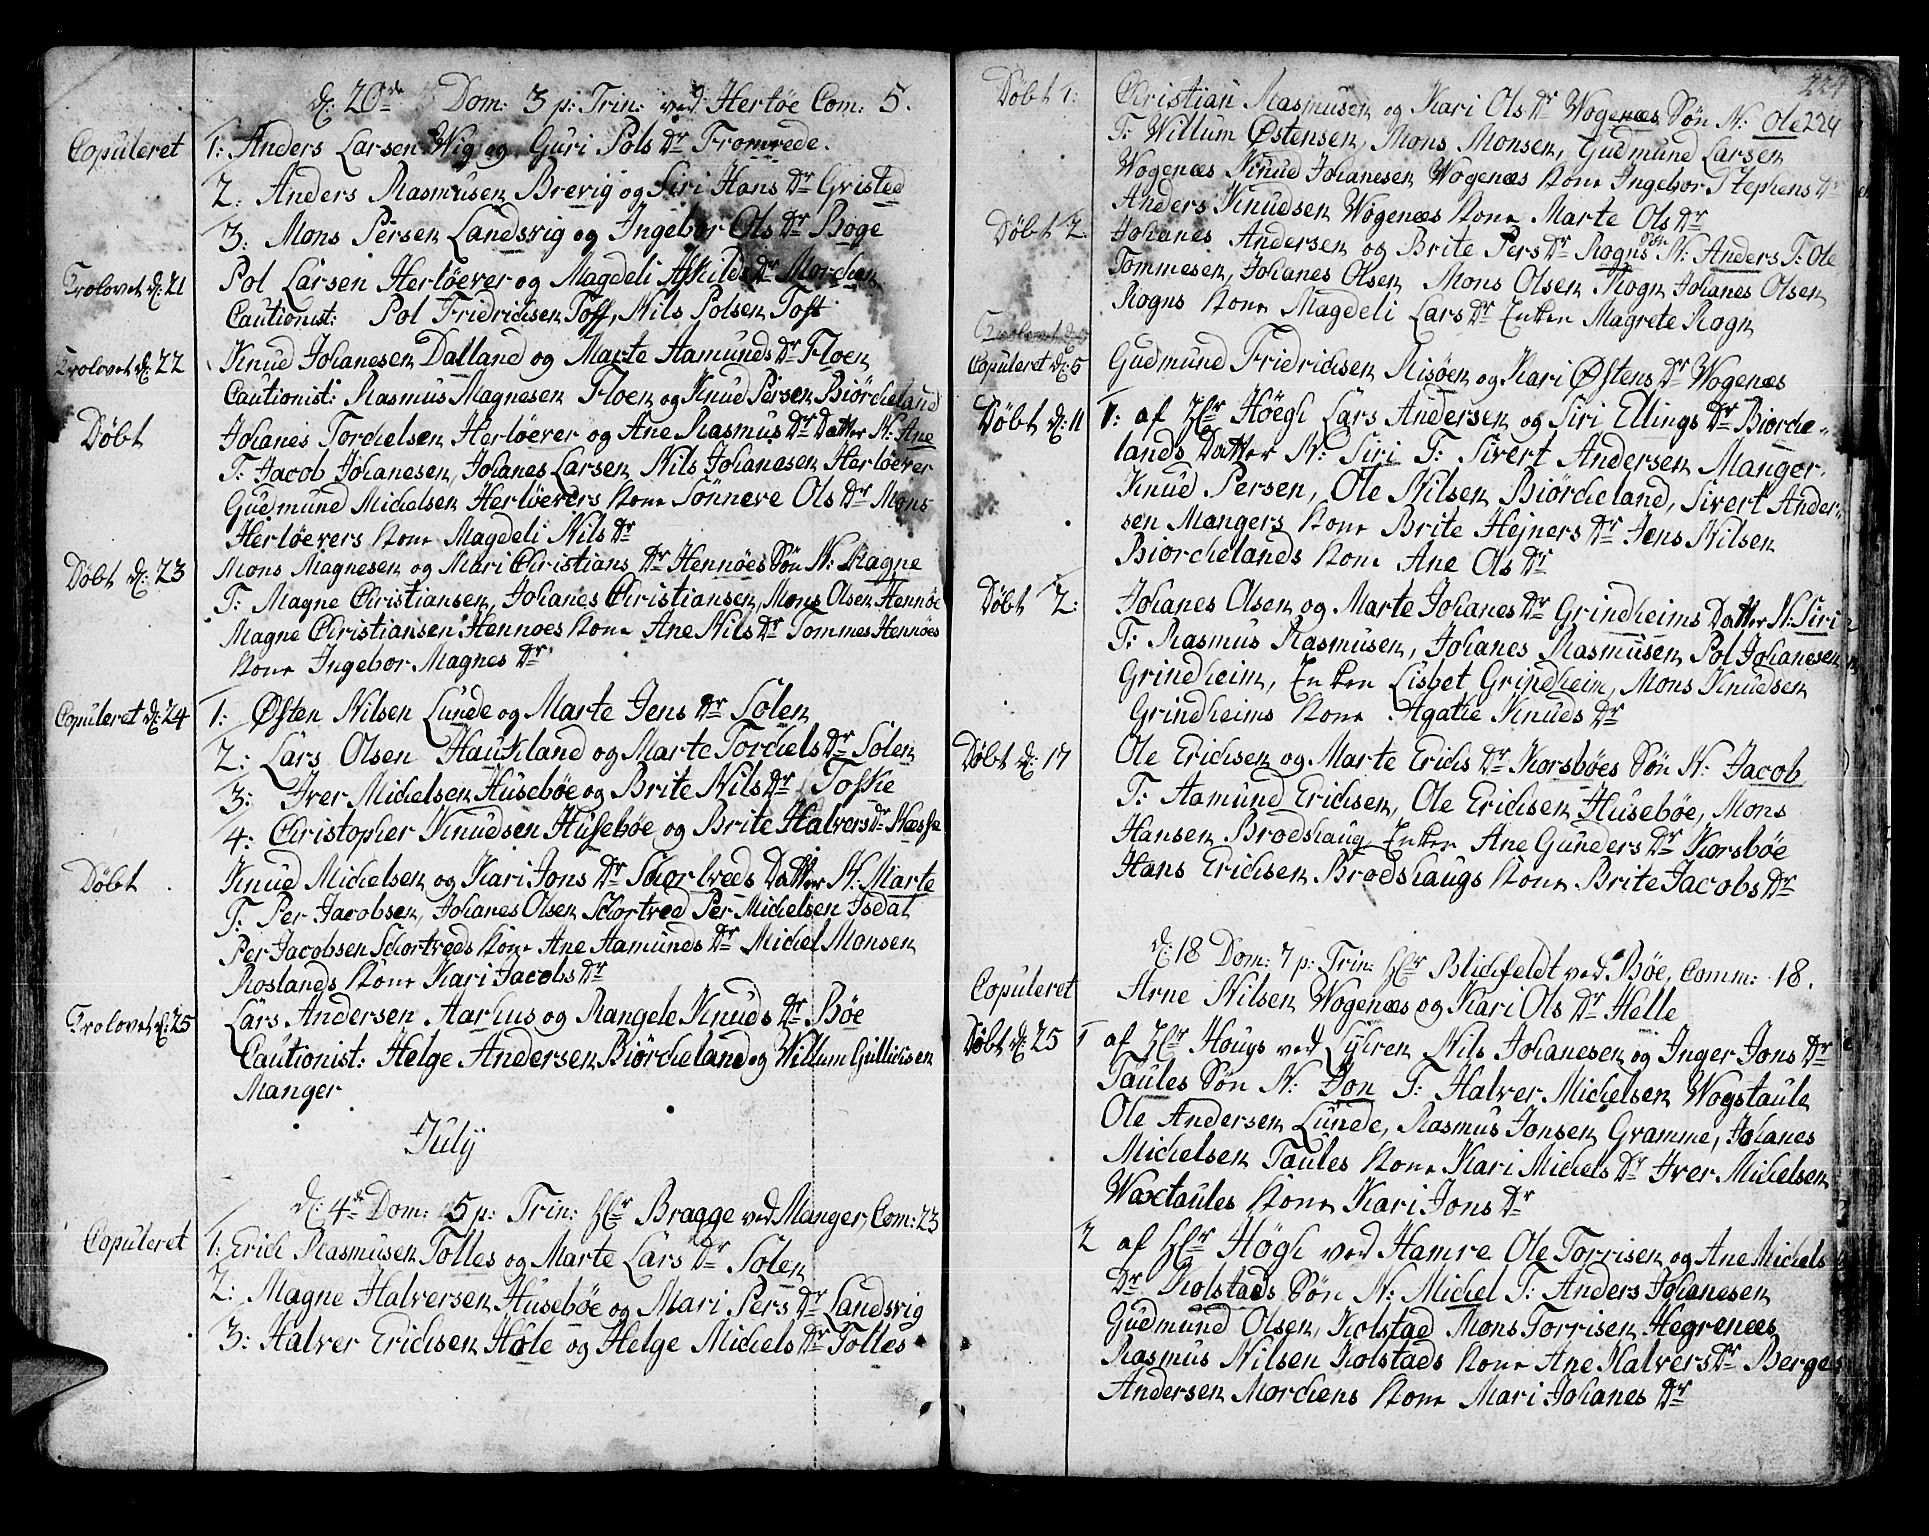 d: 20de Dom: 3 p: Trin: ved Herløe Com: 5.
Copuleret 1: Anders Larsen Wig og Guri Pols Dr Fromrede.
2: Anders Rasmusen Brevig og Siri Hans Dr Gristed
3: Mons Persen Landsvig og Ingebor Ols Dr Boge
Trolovet d: 21 Pol Larsen Herløever og Magdeli Askilds Dr Morchen
Cautionist: Pol Fridrichsen Toft, Nils Polsen Toft
Trolovet d: 22 Knud Johanesen Dalland og Marte Aamunds Dr Floen
Cautionist: Rasmus Magnesen Floen og Knud Persen Biörcheland
Døbt Johanes Torchelsen Herløever og Ane Rasmus Dr Datter N: Ane
T: Jacob Johanesen, Johanes Larsen, Nils Johanesen Herløever
Gudmund Michelsen Herløevers Kone Sønneve Ols Dr Mons
Herløevers Kone Magdeli Nils Dr
Døbt d: 23 Mons Magnesen og Mari Christians Dr Hennöes Søn N: Magne
T: Magne Christiansen, Johanes Christiansen, Mons Olsen Hennöe
Magne Christiansen Hennoes Kone Ane Nils Dr Tommes Hennöes
Kone Ingebor Magnes Dr
Copuleret d: 24 1: Østen Nilsen Lunde og Marte Jens Dr Solen
2: Lars Olsen Haukland og Marte Torchels Dr Solen
3: Iver Michelsen Husebøe og Brite Nils Dr Toske
4: Christopher Knudsen Husebøe og Brite Halvers Dr Næsse
Døbt Knud Michelsen og Kari Jons Dr Schortveds Datter N: Marte
T: Per Jacobsen, Johanes Olsen Schortved Per Michelsen Isdal
Per Jacobsen Schortveds Kone Ane Aamunds Dr Michel Monsen
Roslands Kone Kari Jacobs Dr
Trolovet d: 25 Lars Andersen Aarhus og Rangele Knuds Dr Bøe
Cautionist: Helge Andersen Biörcheland og Willum Gullichsen
Manger
July
d: 4de Dom: 5 p: Trin: Hr Bragge ved Manger, Com: 23
Copuleret 1: Erich Rasmusen Tolles og Marte Lars Dr Solen
2: Magne Halversen Husebøe og Mari Pers Dr Landsvig
3: Halver Erichsen Hole og Helge Michels Dr Tolles
224
Døbt 1: Christian Rasmusen og Kari Ols Dr Wogenæs Søn N: Ole 224
T: Willum Østensen, Mons Monsen, Gudmund Larsen
Wogenæs Knud Johanesen Wogenæs Kone Ingebor Stephens Dr
Anders Knudsen Wogenæs Kone Marte Ols Dr
Døbt 2: Johanes Andersen og Brite Pers Dr Rogns Søn N: Anders T: Ole
Tommesen, Johanes Olsen Mons Olsen Rogn Johanes Olsen
Rogns Kone Magdeli Lars Dr Enken Magrete Rogn
Copuleret d: 5 Gudmund Fridrichsen Risøen og Kari Østens Dr Wogenæs
Døbt d: 11 1: af Hr Høegh Lars Andersen og Siri Ellings Dr Biorche-
lands Datter N: Siri T: Sivert Andersen Manger,
Knud Persen, Ole Nilsen Biørcheland, Sivert Ander-
sen Mangers Kone Brite Hejners Dr Jens Nilsen
Biorchelands Kone Ane Ols Dr
Døbt 2: Johanes Olsen og Marte Johanes Dr Grindheims Datter N: Siri
T: Rasmus Rasmusen, Johanes Rasmusen Pol Johanesen
Grindheim, Enken Lisbet Grindheim, Mons Knudsen
Grindheims Kone Agathe Knuds Dr
Døbt d: 17 Ole Erichsen og Marte Erichs Dr Korsbøes Søn N: Jacob
T: Aamund Erichsen, Ole Erichsen Husebøe, Mons
Hansen Brodshaug Enken Ane Gunders Dr Korsbøe
Hans Erichsen Brodshaugs Kone Brite Jacobs Dr
d: 18 Dom: 7 p: Trin: Hr Blichfeldt ved Bøe, Comm: 18.
Copuleret Arne Nilsen Wogenæs og Kari Ols Dr Helle
Døbt d: 25 1 af Hr Hougs ved Lyhren Nils Johanesen og Inger Jons Dr
Taules Søn N: Jon T: Halver Michelsen Wogstaule
Ole Andersen Lunde, Rasmus Jonsen Gramme, Johanes
Michelsen Taules Kone Kari Michels Dr Iver Michelsen
Waxtaules Kone Kari Jons Dr
2 af Hr Högh ved Hamre Ole Torrisen og Ane Michels
Dr Kolstads Søn N: Michel T: Anders Johanesen
Gudmund Olsen, Kolstad Mons Torrisen Hegrenæs
Rasmus Nilsen Kolstads Kone Ane Halvers Dr Berge
Andersen Morchens Kone Mari Johanes Dr